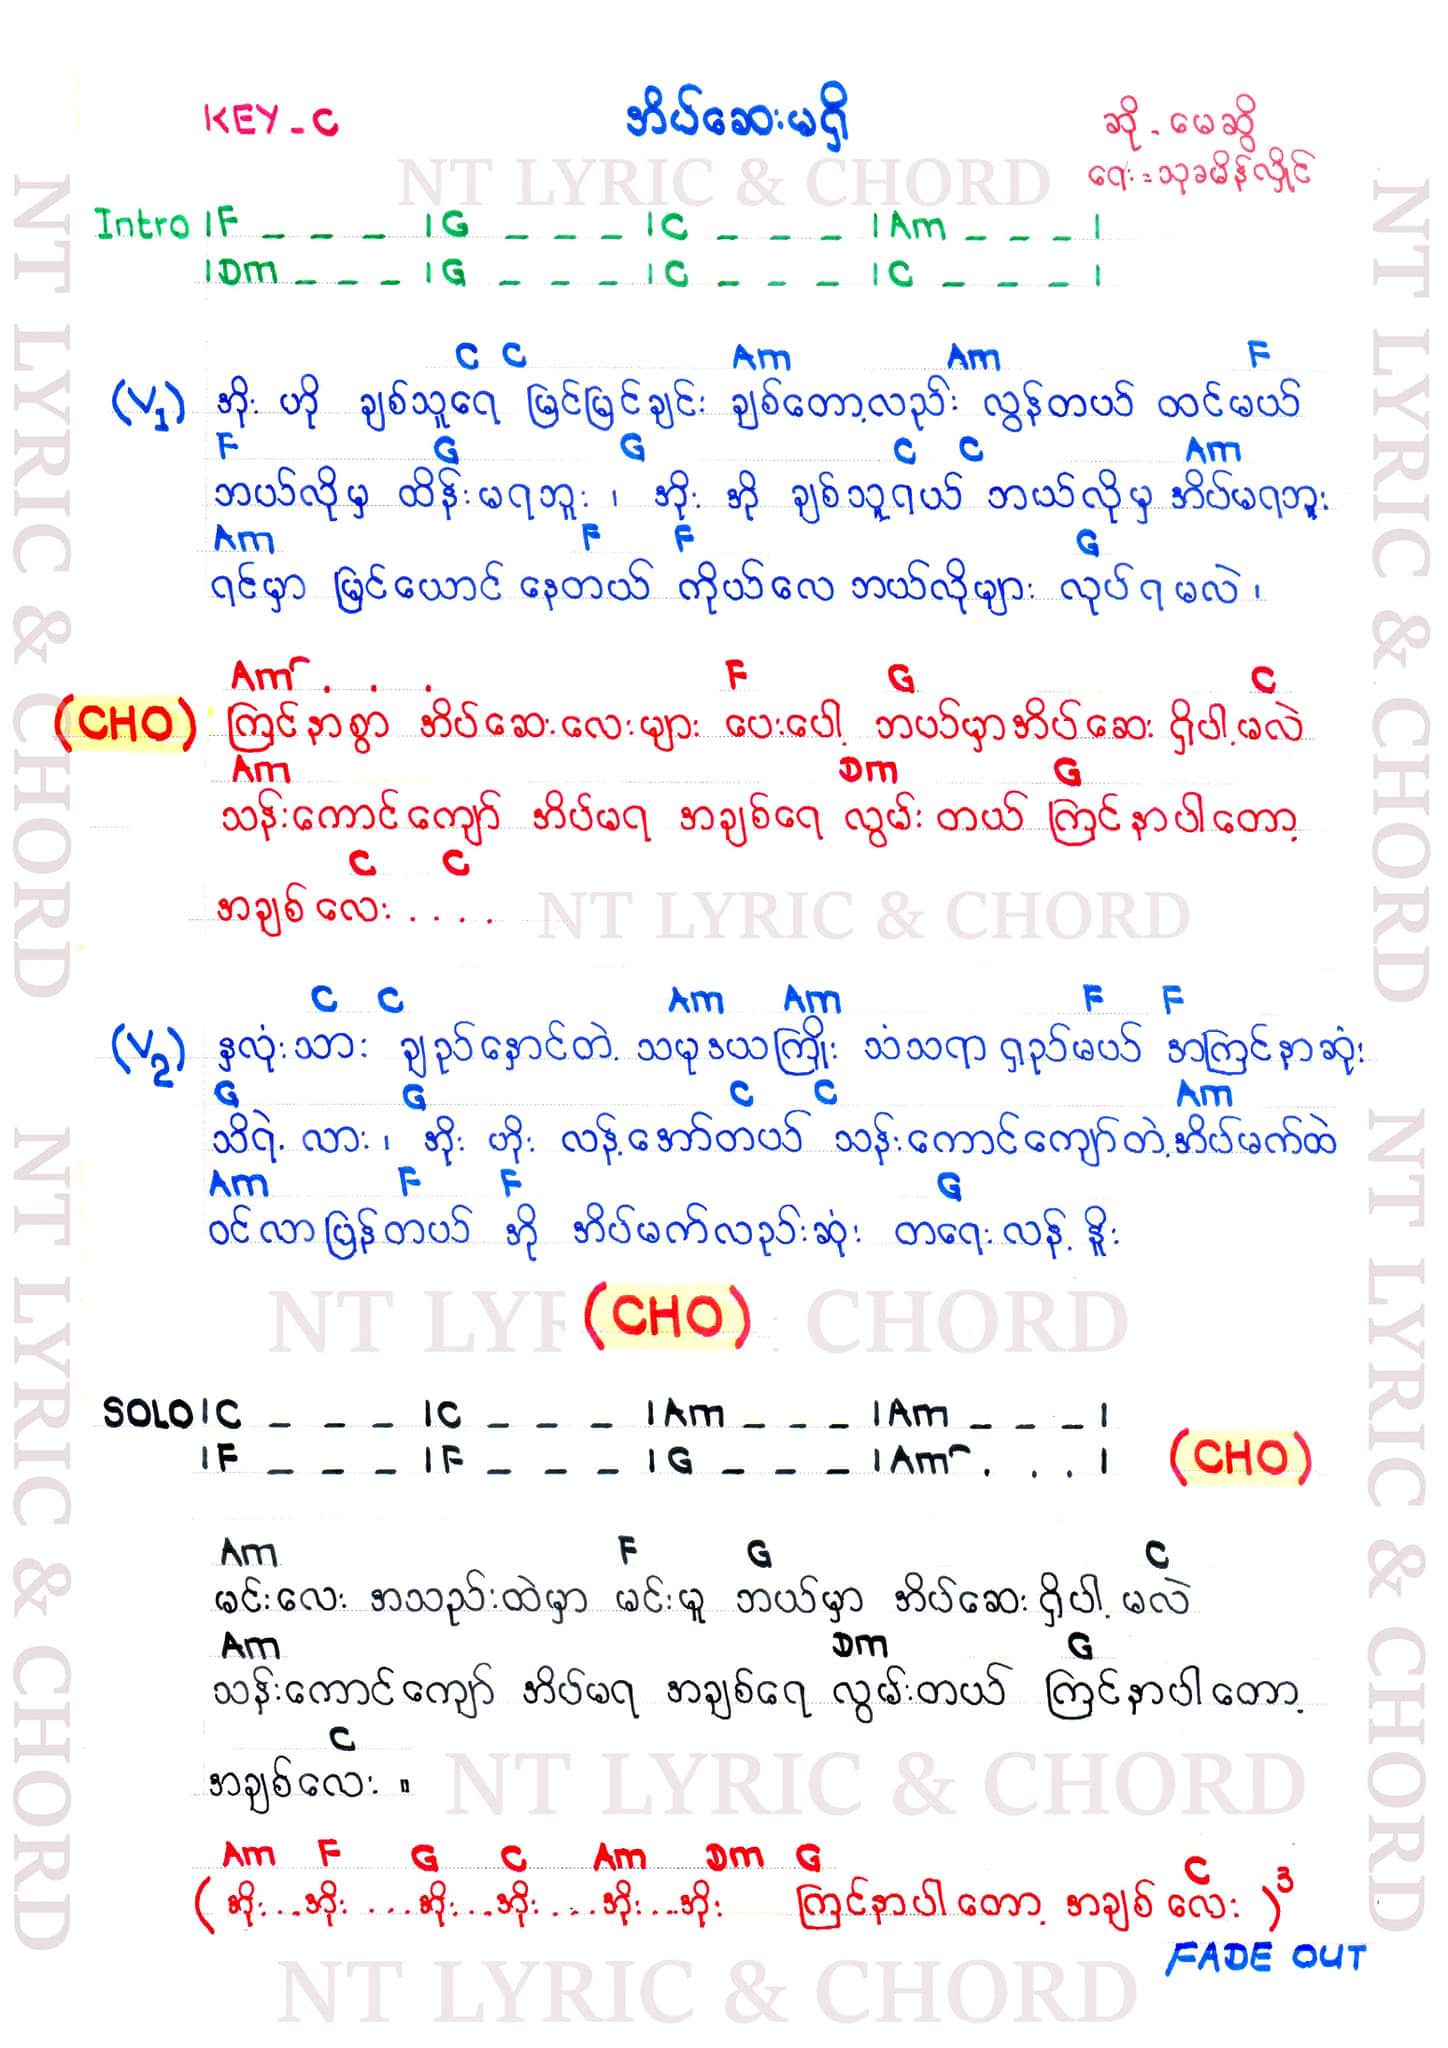 KEY - C
အိပ်ဆေးမရှိ
ဆို - မေဆွိ
ရေး = သုခမိန်လှိုင်
NT LYRIC & CHORD
Intro |F _ _ _ |G _ _ _ |C _ _ _ |Am _ _ _ |
|Dm _ _ _ |G _ _ _ |C _ _ _ |C _ _ _ |
C C Am Am F
(V1) အိုး ဟို ချစ်သူရေ မြင်မြင်ချင်း ချစ်တော့လည်း လွန်တယ် ထင်မယ်
F G G C C Am
ဘယ်လိုမှ ထိန်းမရဘူး ၊ အိုး အို ချစ်သူရယ် ဘယ်လိုမှ အိပ်မရဘူး
Am F F G
ရင်မှာ မြင်ယောင် နေတယ် ကိုယ်လေ ဘယ်လိုများ လုပ်ရမလဲ ၊
Am . . . F G C
(CHO) ကြင်နာစွာ အိပ်ဆေးလေးများ ပေးပေါ့ ဘယ်မှာအိပ်ဆေး ရှိပါ့မလဲ
Am Dm G
သန်းကောင်ကျော် အိပ်မရ အချစ်ရေ လွမ်းတယ် ကြင်နာပါတော့
C C
အချစ်လေး . . . .
NT LYRIC & CHORD
C C Am Am F F
(V2) နှလုံးသား ချည်နှောင်တဲ့ သမုဒယကြိုး သံသရာ ရှည်မယ် အကြင်နာဆုံး
G G C C Am
သိရဲ့ လား ၊ အိုး ဟိုး လန့်အော်တယ် သန်းကောင်ကျော်တဲ့ အိပ်မက်ထဲ
Am F F G
ဝင်လာပြန်တယ် အို အိပ်မက်လည်းဆုံး တရေးလန့် နိုး
(CHO)
NT LYRIC & CHORD
SOLO |C _ _ _ |C _ _ _ |Am _ _ _ |Am _ _ _ |
|F _ _ _ |F _ _ _ |G _ _ _ |Am . . . | (CHO)
Am F G C
မင်းလေး အသည်းထဲမှာ မင်းမူ ဘယ်မှာ အိပ်ဆေးရှိပါ့ မလဲ
Am Dm G
သန်းကောင်ကျော် အိပ်မရ အချစ်ရေ လွမ်းတယ် ကြင်နာပါတော့
C
အချစ်လေး ။
NT LYRIC & CHORD
Am F G C Am Dm G C
( အိုး...အိုး ...အိုး...အိုး ...အိုး...အိုး ကြင်နာပါတော့ အချစ်လေး )3
FADE OUT
NT LYRIC & CHORD
NT LYRIC & CHORD
NT LYRIC & CHORD
NT LYRIC & CHORD
NT LYRIC & CHORD